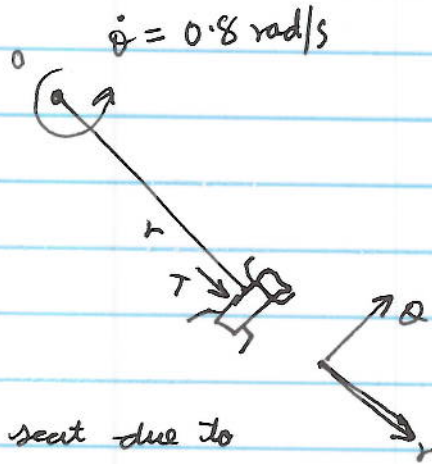 θ̇ = 0.8 rad/s
O
r
T
θ
r
seat due to